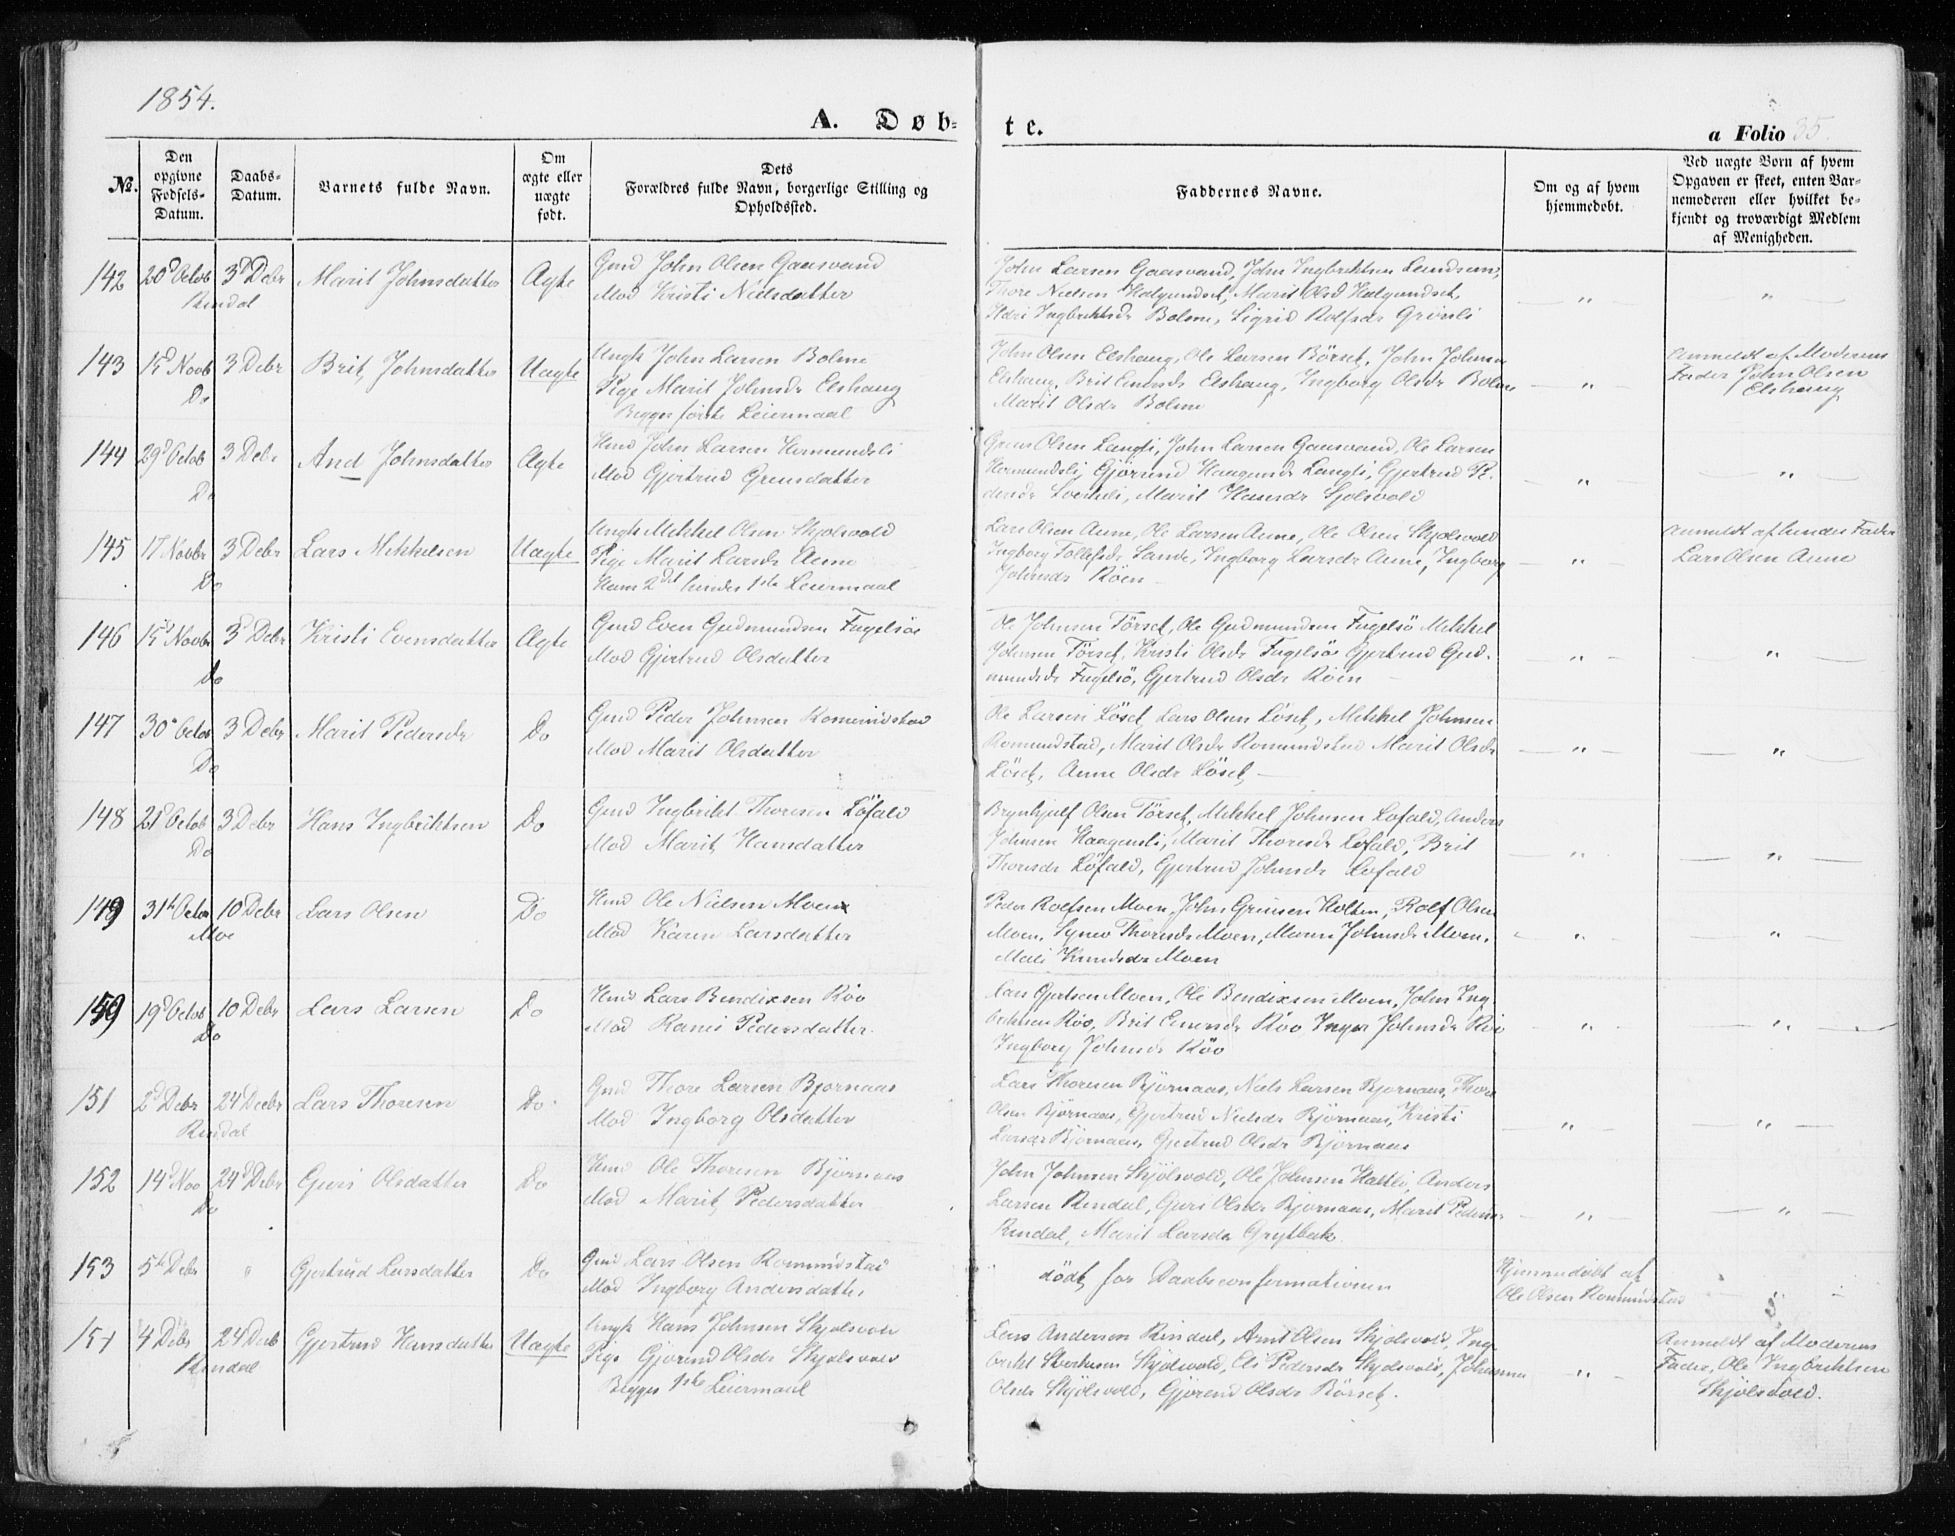 1854.
A. Døb-
te.
a Folio 35.
No.
Den opgivne Fødsels-Datum.
Daabs-Datum.
Barnets fulde Navn.
Om ægte eller uægte født.
Dets Forældres fulde Navn, borgerlige Stilling og Opholdssted.
Faddernes Navne.
Om og af hvem hjemmedøbt.
Ved uægte Born af hvem Opgaven er skeet, enten Barnemoderen eller hvilket bekjendt og troværdigt Medlem af Menigheden.
142 20d Octob 3d Debr Marit Johnsdatter Ægte Gmd John Olsen Gaasvand
Rindal
Mod Kristi Nielsdatter
John Larsen Gaasvand, John Ingbrichtsen Landsem,
Thore Nielsen Halgundset, Marit Olsd Halgundset,
Ildri Ingbrichtsdr Bolme, Sigrid Rolfsdr Grönli
143 15d Novb 3 Debr Brit Johnsdatter Uægte Ungk John Larsen Bolme
Do
Pige Marit Johnsdr Elshaug
Begges förste Leiermaal
John Olsen Elshaug, Ole Larsen Börset, John Johnsen
Elshaug, Brit Einersdr Elshaug, Ingborg Olsdr Bolme
Marit Olsdr Bolme
Anmeldt af Moderens
Fader John Olsen
Elshaug
144 29d Octob 3 Debr And Johnsdatter Ægte Hmd John Larsen Hermundsli
Do
Mod Gjertrud Grunsdatter
Gruns Olsen Langli, John Larsen Gaasvand, Ole Larsen
Hermundsli, Gjörend Haagensdr Langli, Gjertrud Pe-
dersdr Sverkeli, Marit Hansdr Sjolsvold
145 17 Novbr 3 Debr Lars Mikkelsen Uægte Ungk Mikkel Olsen Skjolsvold
Do
Pige Marit Larsdr Aune
Ham 2det hendes 1ste Leiermaal
Lars Olsen Aune, Ole Larsen Aune, Ole Olsen Skjolsvold
Ingborg Tollefsdr Sande, Ingborg Larsdr Aune, Ingborg
Johnsdr Röen
Anmeldt af hendes Fader
Lars Olsen Aune
146 15d Novbr 3d Debr Kristi Evensdatter Ægte Gmd Even Gudmundsen Fugelsöe
Do
Mod Gjertrud Olsdatter
Ole Johnsen Törset, Ole Gudmundsen Fugelsö Mikkel
Johnsen Törset, Kristi Olsdr Fugelsöe Gjertrud Gud-
mundsdr Fugelsö, Gjertrud Olsdr Röen
147 30d Octob 3 Debr Marit Pedersdr Do Gmd Peder Johnsen Romundstad
Do
Mod Marit Olsdatter
Ole Larsen Löset, Lars Olsen Löset, Mikkel Johnsen
Romundstad, Marit Olsdr Romundstad Marit Olsdr
Löset, Anne Olsdr Löset
148 21d Octob 3 Debr Hans Ingbriktsen Do Gmd Ingbrikt Thoresen Löfald
Do
Mod Marit Hansdatter
Brynhjulf Olsen Törset, Mikkel Johnsen Lofald, Anders
Johnsen Haagensli, Marit Thoresdr Lofald, Brit
Thoresdr Löfald, Gjertrud Johnsdr Lofald
149 31te Octbr 10 Debr Lars Olsen Do Hmd Ole Nielsen Moen
Moe
Mod Karen Larsdatter
Peder Rolfsen Moen, John Grunsen Holten, Rolf Olsen
Moen, Synev Thoresdr Moen, Maren Johnsdr Moen,
Mali Knudsdr Moen
159 19d Octob 10 Debr Lars Larsen Do Hmd Lars Bendixsen Röv
Do
Mod Ranei Pedersdatter
Lars Gjertsen Moen, Ole Bendixsen Moen, John Ing-
brikten Röv, Brit Einersdr Röv Inger Johnsdr Röv
Ingborg Johnsdr Röv
151 2d Debr 24 Decbr Lars Thoresen Do Gmd Thore Larsen Bjornaas
Rindal
Mod Ingborg Olsdatter
Lars Thoresen Björnaas, Niels Larsen Bjornaas, Thore
Olsen Björnaas, Gjertrud Nielsdr Björnaas, Kristi
Larsdr Björnaas, Gjertrud Olsdr Björnaas
152 14d Nov 24d Debr Guri Olsdatter Do Hmd Ole Thoresen Björnaas
Do
Mod Marit Pedersdatter
John Johnsen Skjölsvold, Ole Johnsen Haltli, Anders
Larsen Rindal, Guri Olsdr Bjornaas, Marit Pedersdr
Rindal, Marit Larsdr Grytbak
153 5te Debr " Gjertrud Larsdatter Do Gmd Lars Olsen Romundstad
Mod Ingborg Andersdatter
Födt, for Daabsconfermationen
Hjemmedöbt af
Ole Olsen Romundstad
154 4 Debr 24 Decb Gjertrud Hansdatter Uægte Ungk Hans Johnsen Skjolsvold
Rindal
Pige Gjörend Olsdr Skjolsvold
Begges 1ste Leiermaal
Lars Andersen Rindal, Arnt Olsen Skjolsvold, Ing-
brikt Sverkesen Skjölsvold, Eli Pedersdr Skjolsvold, Johanna
Olsdr Skjölsvold, Gjörend Olsdr Börset.
Anmeldt af Moderens
Fader, Ole Ingbriktsen
Skjölsvold.